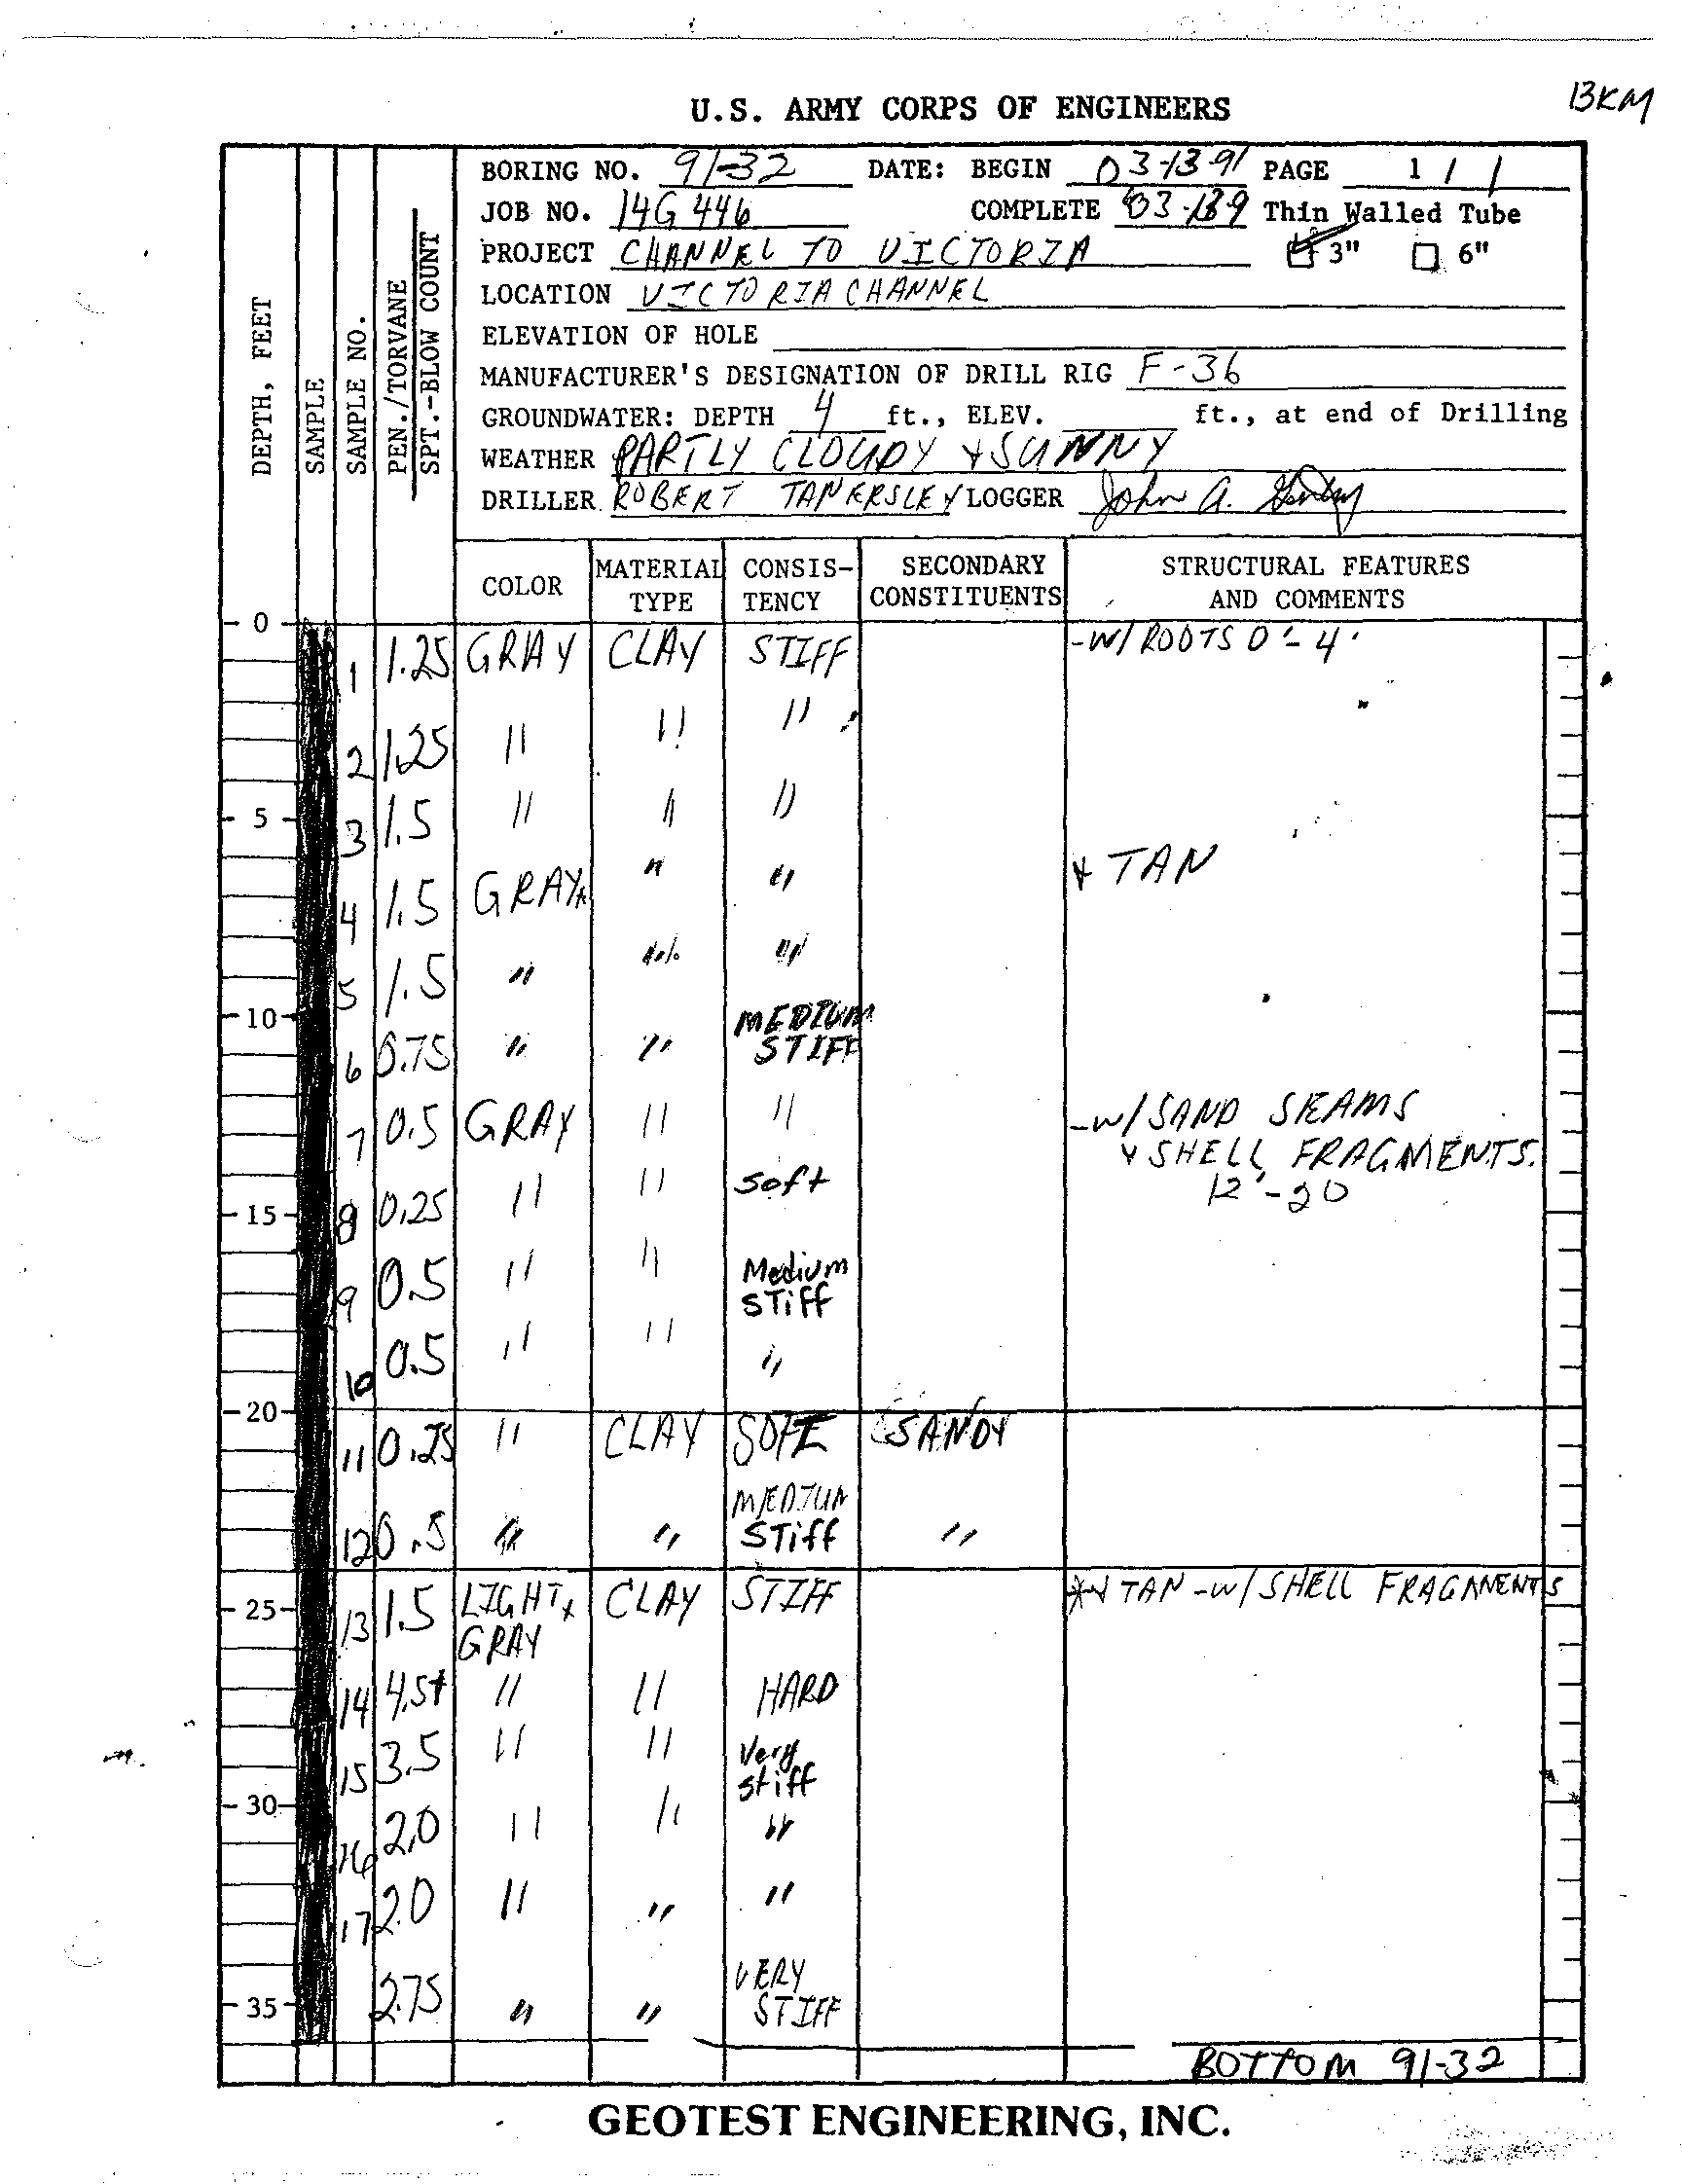 BKM
U.S. ARMY CORPS OF ENGINEERS
BORING NO. 91-32 DATE: BEGIN 03-13-91 PAGE 1 / 1
JOB NO. 14G446 COMPLETE 03-139 Thin Walled Tube
PROJECT CHANNEL TO VICTORIA 3" 6"
LOCATION VICTORIA CHANNEL
ELEVATION OF HOLE
MANUFACTURER'S DESIGNATION OF DRILL RIG F-36
GROUNDWATER: DEPTH 4 ft., ELEV. ft., at end of Drilling
WEATHER PARTLY CLOUDY & SUNNY
DRILLER ROBERT TANKERSLEY LOGGER John A.
DEPTH, FEET
SAMPLE
SAMPLE NO.
PEN./TORVANE
SPT.-BLOW COUNT
COLOR MATERIAL TYPE CONSIS-TENCY SECONDARY CONSTITUENTS STRUCTURAL FEATURES AND COMMENTS
0
1 1.25 GRAY CLAY STIFF -W/ ROOTS 0'-4'
2 1.25 " " "
5
3 1.5 " " "
4 1.5 GRAY* " " & TAN
5 1.5 " " "
10
6 0.75 " " MEDIUM STIFF
7 0.5 GRAY " " -W/ SAND SEAMS
& SHELL FRAGMENTS.
12'-20
15
8 0.25 " " Soft
9 0.5 " " Medium STiff
10 0.5 " " "
20
11 0.25 " CLAY SOFT SANDY
12 0.5 " " MEDIUM STiff "
25
13 1.5 LIGHT* GRAY CLAY STIFF *& TAN -W/ SHELL FRAGMENTS
14 4.5+ " " HARD
15 3.5 " " Very stiff
30
16 2.0 " " "
17 2.0 " " "
35
2.75 " " VERY STIFF
BOTTOM 91-32
GEOTEST ENGINEERING, INC.